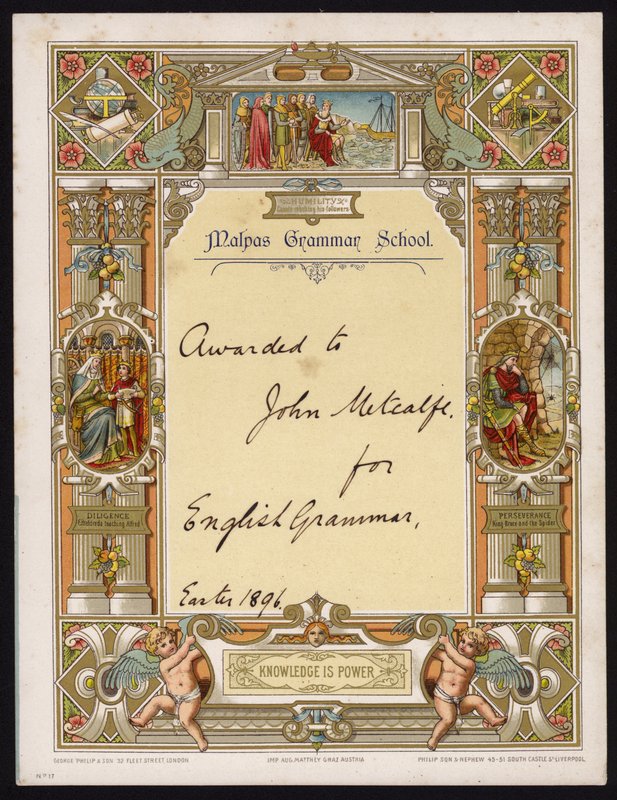 HUMILITY
Canute rebuking his followers.
Malpas Grammar School.
Awarded to
John Metcalfe.
for
English Grammar,
Easter 1896.
DILIGENCE
teaching Alfred
PERSEVERANCE
King Bruce and the Spider
KNOWLEDGE IS POWER
GEORGE PHILIP & SON 32 FLEET STREET LONDON
IMP AUG. MATTHEY GRAZ AUSTRIA
PHILIP SON & NEPHEW 45-51 SOUTH CASTLE ST LIVERPOOL
No 17